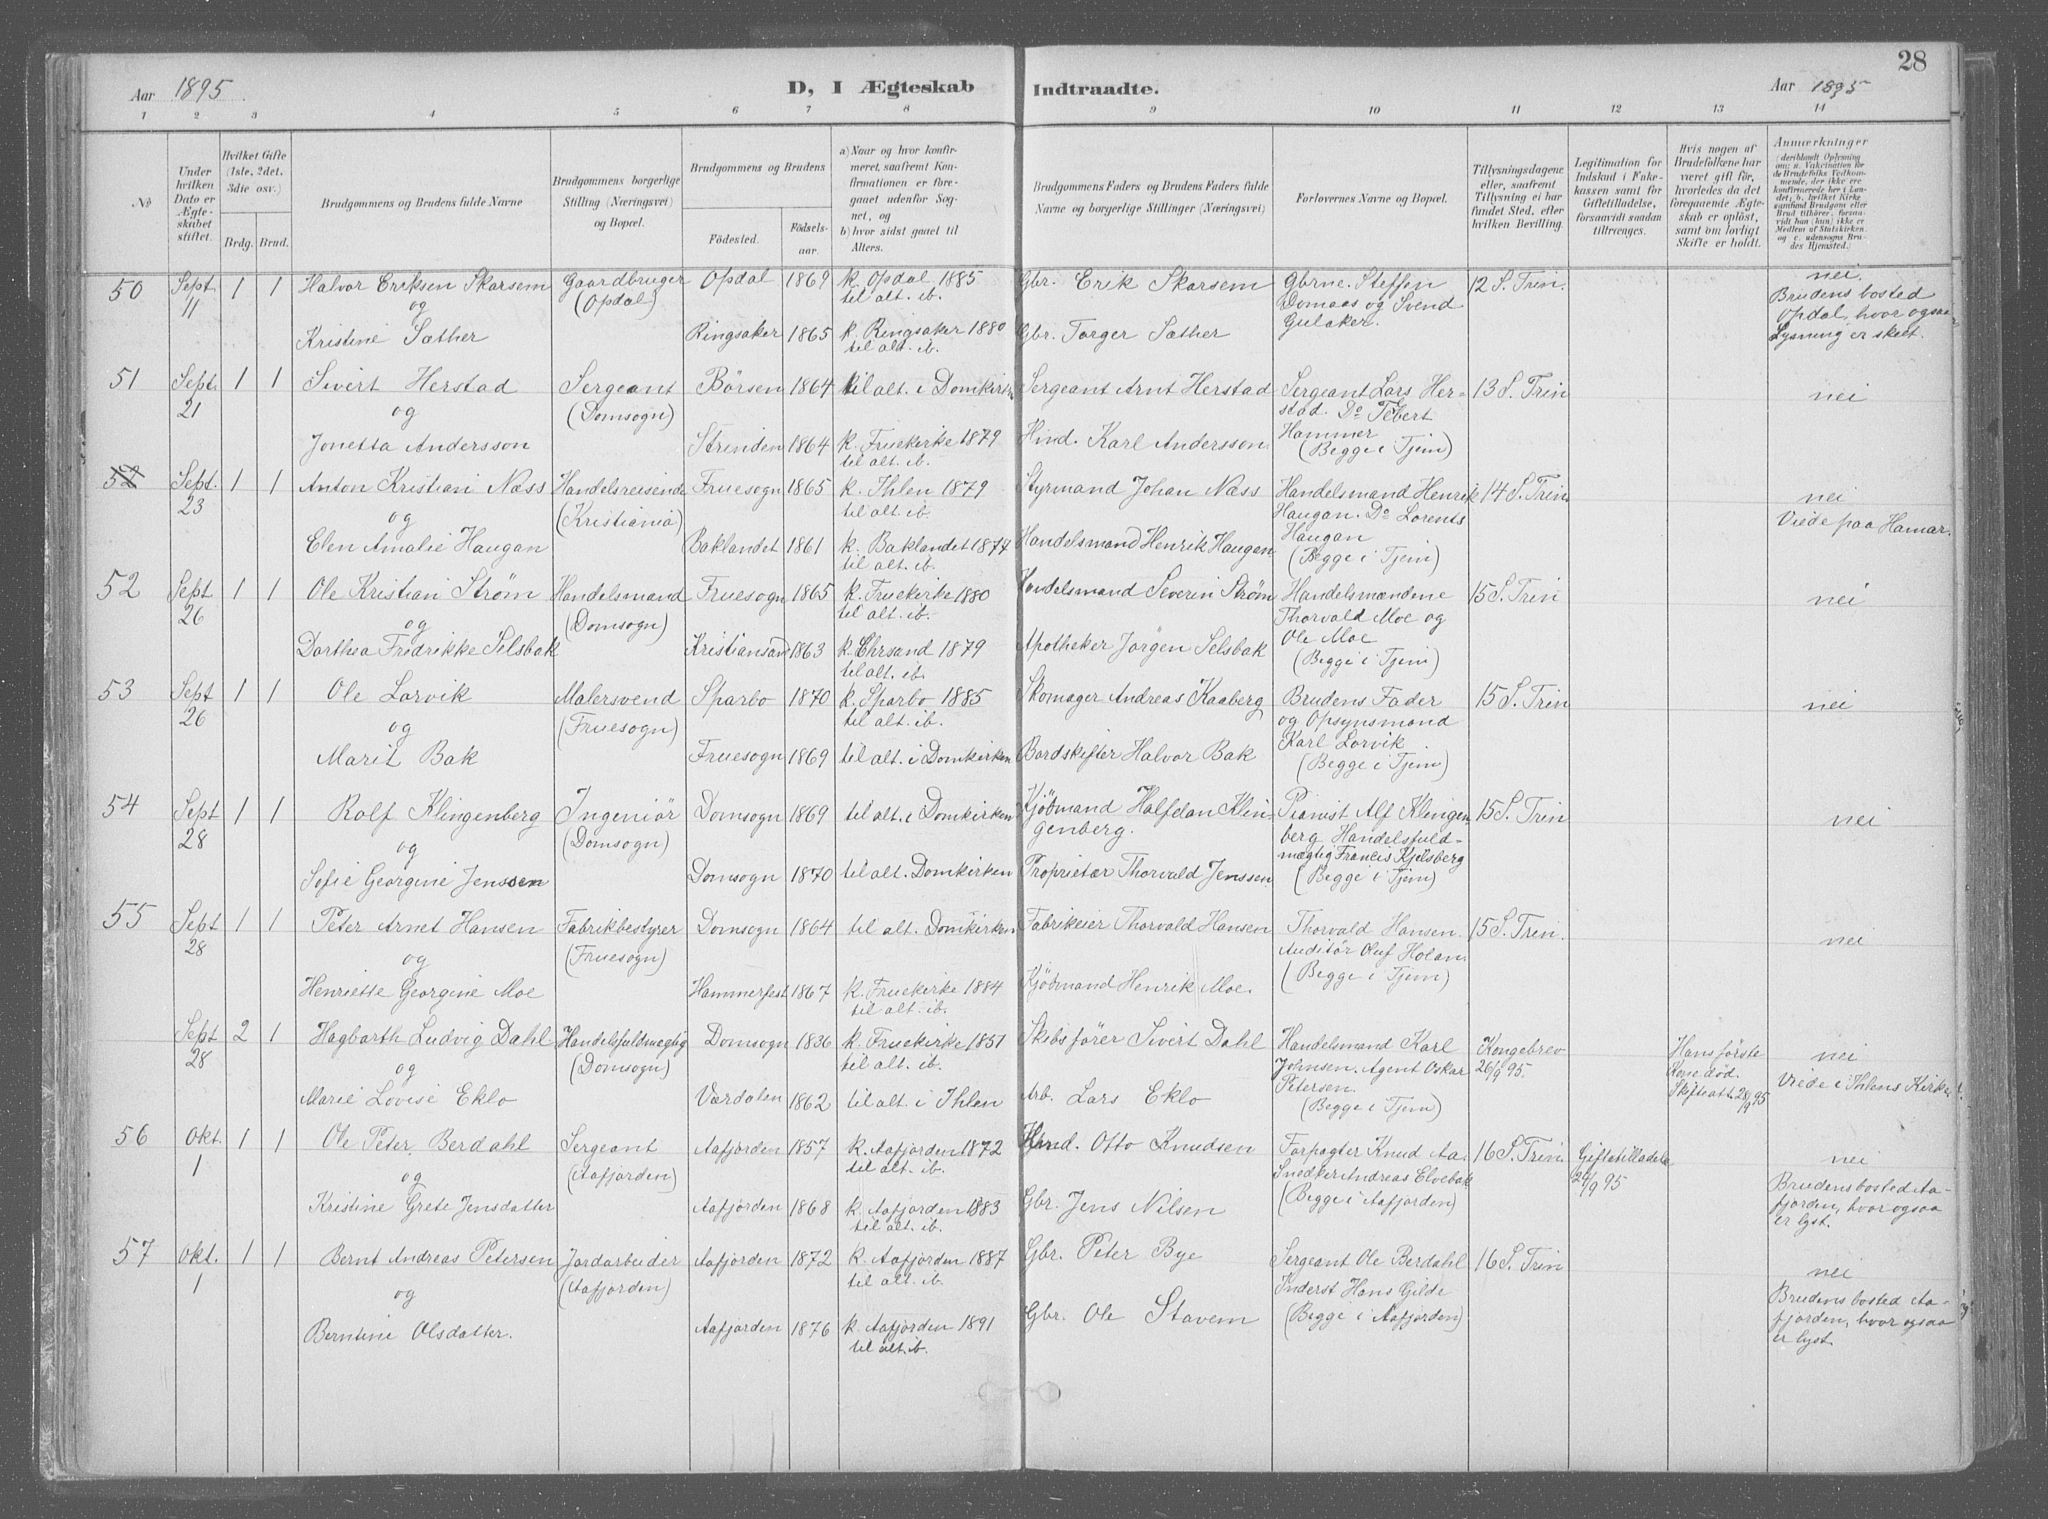 28
Aar 1895.
D, I Ægteskab Indtraadte.
Aar 1895
1 2 3 4 5 6 7 8 9 10 11 12 13 14
No
Under hvilken Dato er Ægteskabet stiftet.
Hvilket Gifte (1ste, 2det, 3die osv.)
Brdg. Brud.
Brudgommens og Brudens fulde Navne
Brudgommens borgerlige Stilling (Næringsvei) og Bopæl.
Brudgommens og Brudens
Fødested. Fødselsaar.
a) Naar og hvor konfirmeret, saafremt Konfirmationen er foregaaet udenfor Sognet, og
b) hvor sidst gaaet til Alters.
Brudgommens Faders og Brudens Faders fulde Navne og borgerlige Stillinger (Næringsvei)
Forlovernes Navne og Bopæl.
Tillysningsdagene eller, saafremt Tillysning ei har fundet Sted, efter hvilken Bevilling.
Legitimation for Indskud i Enkekassen samt for Giftetilladelse, forsaavidt saadan tiltrænges.
Hvis nogen af Brudefolkene har været gift før, hvorledes da det foregaaende Ægteskab er opløst, samt om lovligt Skifte er holdt.
Anmerkninger
(deriblandt Oplysning om: a. Vakcination for de Brudefolks Vedkommende, der ikke ere konfirmerede her i Landet; b. hvilket Kirkesamfund Brudgom eller Brud tilhører, forsaavidt han (hun) ikke er Medlem af Statskirken og c. udensogns Brudes Hjemsted.
50 Sept 11 1 1 Halvor Eriksen Skarsem Gaardbruger (Opdal) Opdal 1869 k. Opdal 1885 til alt. ib. Gbr. Erik Skarsem Gbrne. Steffen Domaas og Svend Gulaker. 12 S. Trin. nei. Brudens bosted Opdal, hvor ogsaa Lysning er skeet.
og
Kristine Sæther Ringsaker 1865 k. Ringsaker 1880 til alt. ib. Gbr. Torger Sæther
51 Sept. 21 1 1 Sivert Herstad Sergeant (Domsogn) Börsen 1864 til alt. i Domkirken Sergeant Arnt Herstad Sergeant Lars Herstad. Do Hammer (Begge i Tjem) 13 S. Trin nei
og
Jonetta Andersson Strinden 1864 k. Fruekirke 1879 til alt. ib. Hmd. Karl Andersson
52 Sept. 23 1 1 Anton Kristian Næss Handelsreisende (Kristiania) Fruesogn 1865 k. Ihlen 1879 til alt. ib. Styrmand Johan Næss Handelsmand Henrik Haugan. Do Lorents Haugan (Begge i Tjem) 14 S. Trin nei Viede paa Hamar.
og
Elen Amalie Haugan Baklandet 1861 k. Baklandet 1877 til alt. ib. Handelsmand Henrik Haugan
52 Sept 26 1 1 Ole Kristian Strøm Handelsmand (Domsogn) Fruesogn 1865 k. Fruekirke 1880 til alt. ib. Handelsmand Severin Strøm Handelsmændene Thorvald Moe og Ole Moe (Begge i Tjem) 15 S. Trin nei
og
Dorthea Fredrikke Selsbak Kristiansand 1863 k. Chrsand 1879 til alt. ib. Apotheker Jörgen Selsbak
53 Sept 26 1 1 Ole Lorvik Malersvend (Fruesogn) Sparbo 1870 k. Sparbo 1885 til alt. ib. Skomager Andreas Kaaberg Brudens Fader og Opsynsmand Karl Lorvik (Begge i Tjem) 15 S. Trin nei
og
Marit Bak Fruesogn 1869 til alt. i Domkirken Bordskifter Halvor Bak
54 Sept 28 1 1 Rolf Klingenberg Ingeniör (Domsogn) Domsogn 1869 til alt. i Domkirken Kjöbmand Halfdan Klingenberg. Pianist Alf Klingenberg Handelsfuldmægtig Francis Kjelsberg (Begge i Tjem) 15 S. Trin nei
og
Sofie Georgine Jenssen Domsogn 1870 til alt. Domkirken Proprietær Thorvald Jenssen
55 Sept 28 1 1 Peter Arnet Hansen Fabrikbestyrer (Fruesogn) Domsogn 1864 til alt. Domkirken Fabrikeier Thorvald Hansen Thorvald Hansen. Auditör Oluf Holan. (Begge i Tjem) 15 S. Trin. nei
og
Henriette Georgine Moe Hammerfest 1867 k. Fruekirke 1884 til alt. ib. Kjöbmand Henrik Moe.
Sept 28 2 1 Hagbarth Ludvig Dahl Handelsfuldmægtig (Domsogn) Domsogn 1836 k. Fruekirke 1851 til alt. ib. Skibsförer Sivert Dahl Handelsmand Karl Johnsen. Agent Oskar Petersen. (Begge i Tjem) Kongebrev 26/9 95. Hans förste Kone död. Skifteatt. 28/9 95 nei Viede i Ihlens Kirke
og
Marie Lovise Eklo Værdalen 1862 til alt. i Ihlen Arb. Lars Eklo
56 Okt. 1 1 1 Ole Peter Berdahl Sergeant (Aafjorden) Aafjorden 1857 k. Aafjorden 1872 til alt. ib. Hmd. Otto Knudsen Forpagter Knud Aa. Snedker Andreas Elvebak (Begge i Aafjorden) 16 S. Trin. Giftetilladelse 24/9 95 nei Brudens bosted Aafjorden, hvor ogsaa er lyst.
og
Kristine Grete Jensdatter Aafjorden 1868 k. Aafjorden 1883 til alt. ib. Gbr. Jens Nilsen
57 Okt. 1 1 1 Bernt Andreas Petersen Jordarbeider (Aafjorden) Aafjorden 1872 k. Aafjorden 1887 til alt. ib. Gbr. Peter Bye Sergeant Ole Berdahl Inderst Hans Gilde (Begge i Aafjorden) 16 S. Trin nei Brudens bosted Aafjorden, hvor ogsaa er lyst
og
Berntine Olsdatter. Aafjorden 1876 k. Aafjorden 1891 til alt. ib. Gbr. Ole Stavem